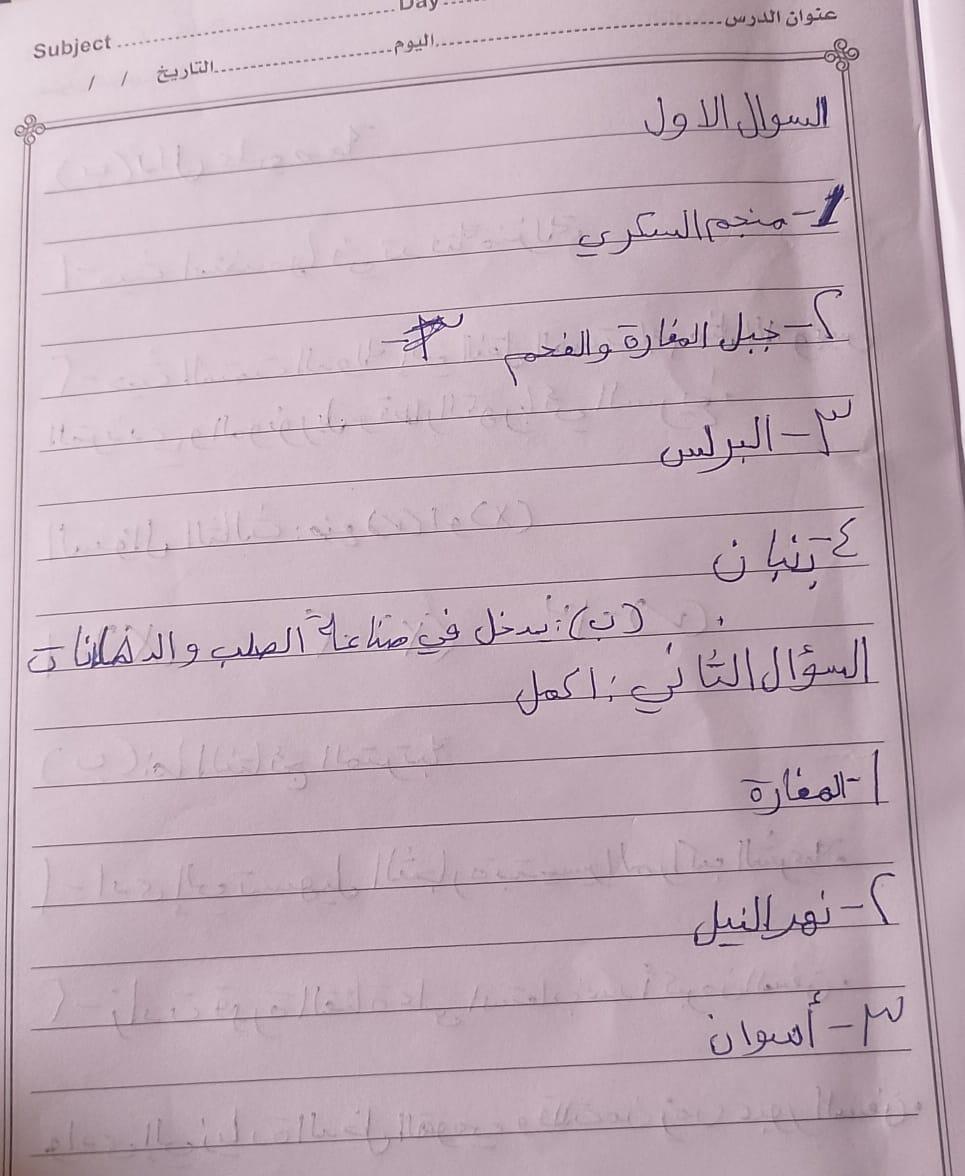 Day
Subject
عنوان الدرس
اليوم
التاريخ / /
السوال الاول
1- منجم السكري
٢- جبل المغارة والفحم
٣- البرلس
٤- بنبان
(ب): تدخل في صناعة الصلب والدهانات
السؤال الثاني: اكمل
١- المغارة
٢- نهر النيل
٣- أسوان